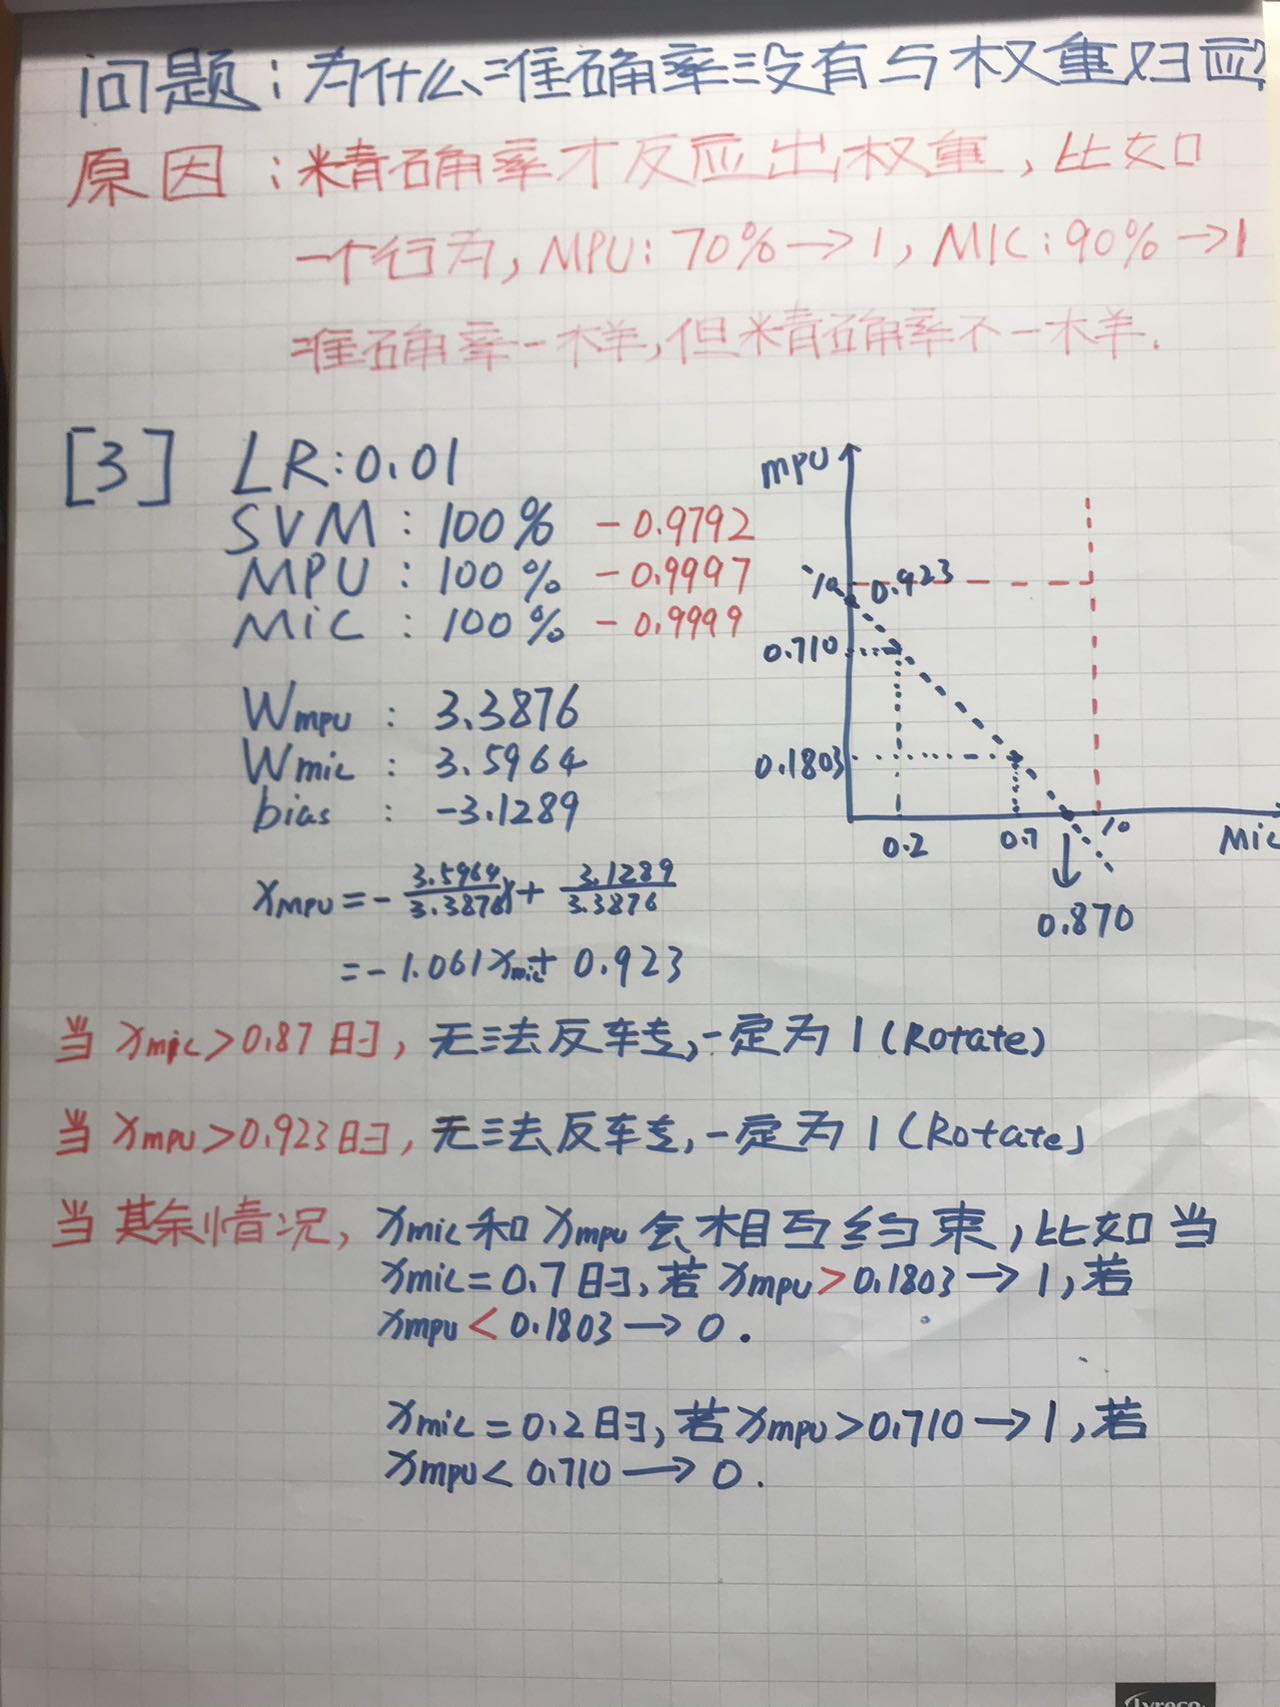 问题：为什么准确率没有与权重对应?
原因：精确率才反应出权重，比如
一个行为，MPU：70%→1，MIC：90%→1
准确率一样，但精确率不一样.
[3] LR:0.01
SVM : 100% - 0.9792
MPU : 100% - 0.9997
MiC : 100% - 0.9999
Wmpu : 3.3876
Wmic : 3.5964
bias : -3.1289
xMPU = - 3.5964/3.3876 x + 3.1289/3.3876
= - 1.061xmic + 0.923
mpu
1.0
0.923
0.710
0.1803
0.2
0.7
1.0
Mic
0.870
当 xmic>0.87时，无法反转，一定为1(Rotate)
当 xmpu>0.923时，无法反转，一定为1(Rotate)
当其余情况，xmic和xmpu会相互约束，比如当
xmic=0.7时，若xmpu>0.1803→1，若
xmpu<0.1803→0.
xmic=0.2时，若xmpu>0.710→1，若
xmpu<0.710→0.
Lyreco